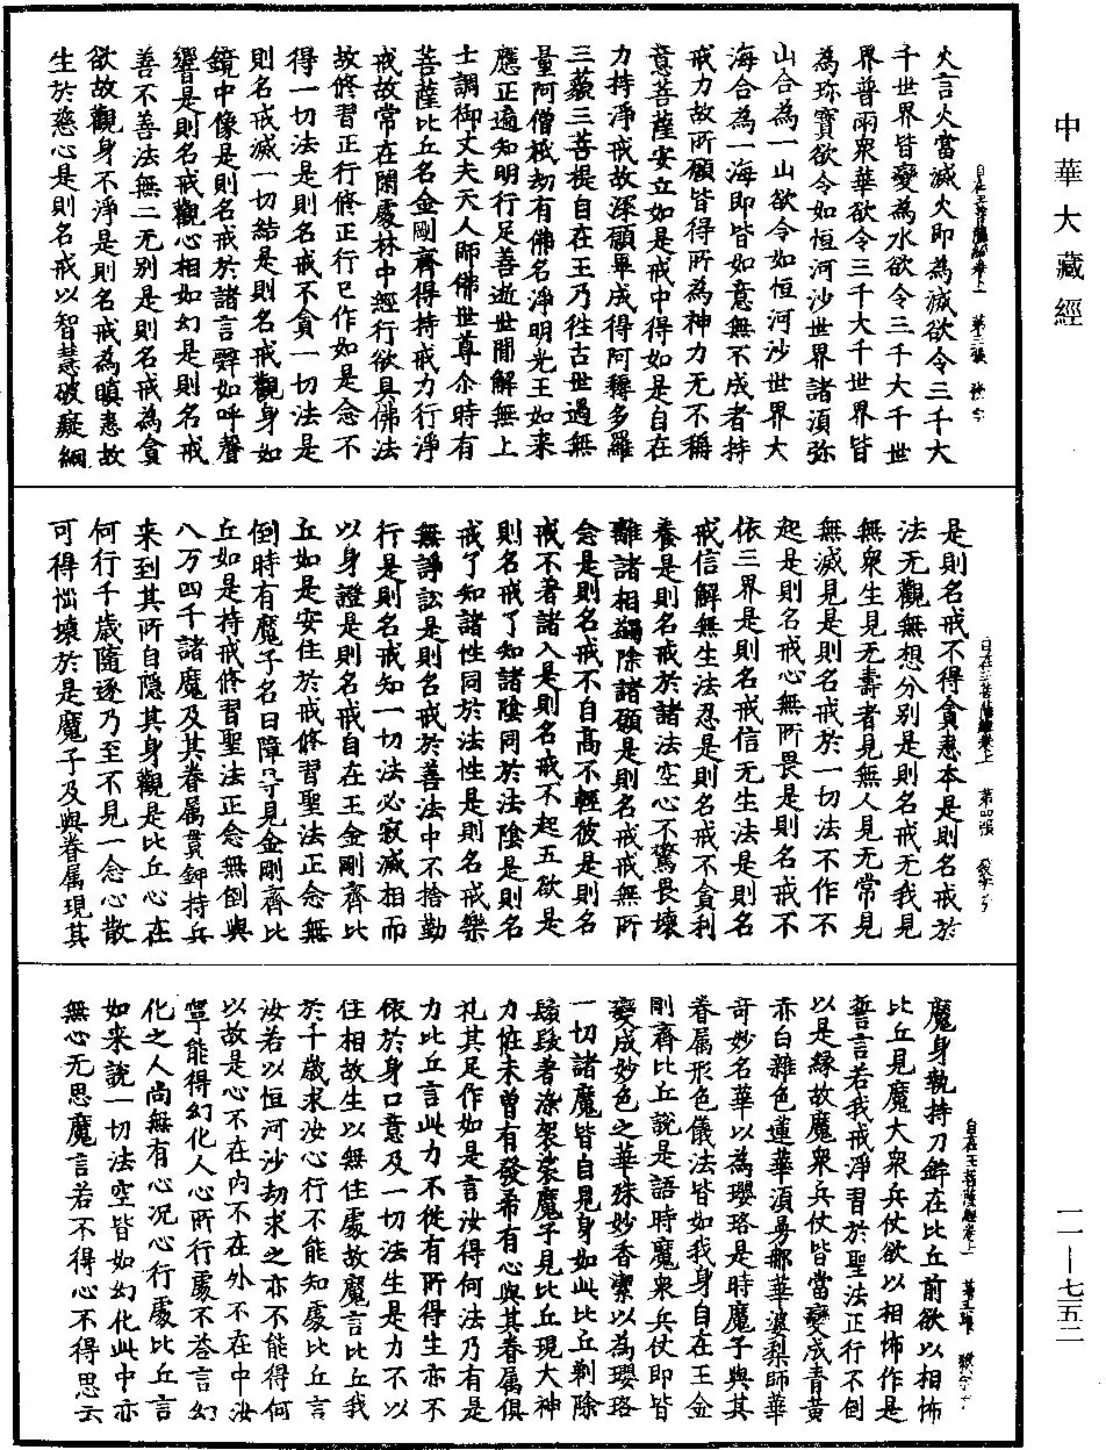 中華大藏經
自在王菩薩經卷上　第三張
火言火當滅火即為滅欲令三千大
千世界皆變為水欲令三千大千世
界普雨衆華欲令三千大千世界皆
為珎寶欲令如恒河沙世界諸湏弥
山合為一山欲令如恒河沙世界大
海合為一海即皆如意無不成者持
戒力故所願皆得所為神力无不稱
意菩薩安立如是戒中得如是自在
力持淨戒故深願畢成得阿耨多羅
三藐三菩提自在王乃徃古世過無
量阿僧祇劫有佛名淨明光王如来
應正遍知明行足善逝世間解無上
士調御丈夫天人師佛世尊尒時有
菩薩比丘名金剛齊得持戒力行淨
戒故常在閑處林中經行欲具佛法
故修習正行修正行已作如是念不
得一切法是則名戒不貪一切法是
則名戒滅一切結是則名戒觀身如
鏡中像是則名戒於諸言辭如呼聲
響是則名戒觀心相如幻是則名戒
善不善法無二无别是則名戒為貪
欲故觀身不淨是則名戒為瞋恚故
生於慈心是則名戒以智慧破癡網
自在王菩薩經卷上　第四張
是則名戒不得貪恚本是則名戒於
法无觀無想分别是則名戒无我見
無衆生見无壽者見無人見无常見
無滅見是則名戒於一切法不作不
起是則名戒心無所畏是則名戒不
依三界是則名戒信无生法是則名
戒信解無生法忍是則名戒不貪利
養是則名戒於諸法空心不驚畏壞
離諸相蠲除諸願是則名戒戒無所
念是則名戒不自高不輕彼是則名
戒不著諸入是則名戒不起五欲是
則名戒了知諸陰同於法陰是則名
戒了知諸性同於法性是則名戒樂
無諍訟是則名戒於善法中不捨勤
行是則名戒知一切法必寂滅相而
以身證是則名戒自在王金剛齊比
丘如是安住於戒修習聖法正念無
倒時有魔子名曰障㝵見金剛齊比
丘如是持戒修習聖法正念無倒與
八万四千諸魔及其眷属貫鉀持兵
来到其所自隱其身觀是比丘心在
何行千歲隨逐乃至不見一念心散
可得惱壞於是魔子及與眷属現其
自在王菩薩經卷上　第五張
魔身執持刀鉾在比丘前欲以相怖
比丘見魔大衆兵仗欲以相怖作是
誓言若我戒淨習於聖法正行不倒
以是緣故魔衆兵仗皆當變成青黄
赤白雜色蓮華湏曼那華婆梨師華
奇妙名華以為瓔珞是時魔子與其
眷属形色儀法皆如我身自在王金
剛齊比丘說是語時魔衆兵仗即皆
變成妙色之華殊妙香潔以為瓔珞
一切諸魔皆自見身如此比丘剃除
鬚髮著染袈裟魔子見比丘現大神
力恠未曾有發希有心與其眷属俱
礼其足作如是言汝得何法乃有是
力比丘言此力不從有所得生亦不
依於身口意及一切法生是力不以
住相故生以無住處故魔言比丘我
於千歲求汝心行不能知處比丘言
汝若以恒河沙劫求之亦不能得何
以故是心不在内不在外不在中汝
寧能得幻化人心所行處不荅言幻
化之人尚無有心况心行處比丘言
如来說一切法空皆如幻化此中亦
無心无思魔言若不得心不得思云
一一—七五二